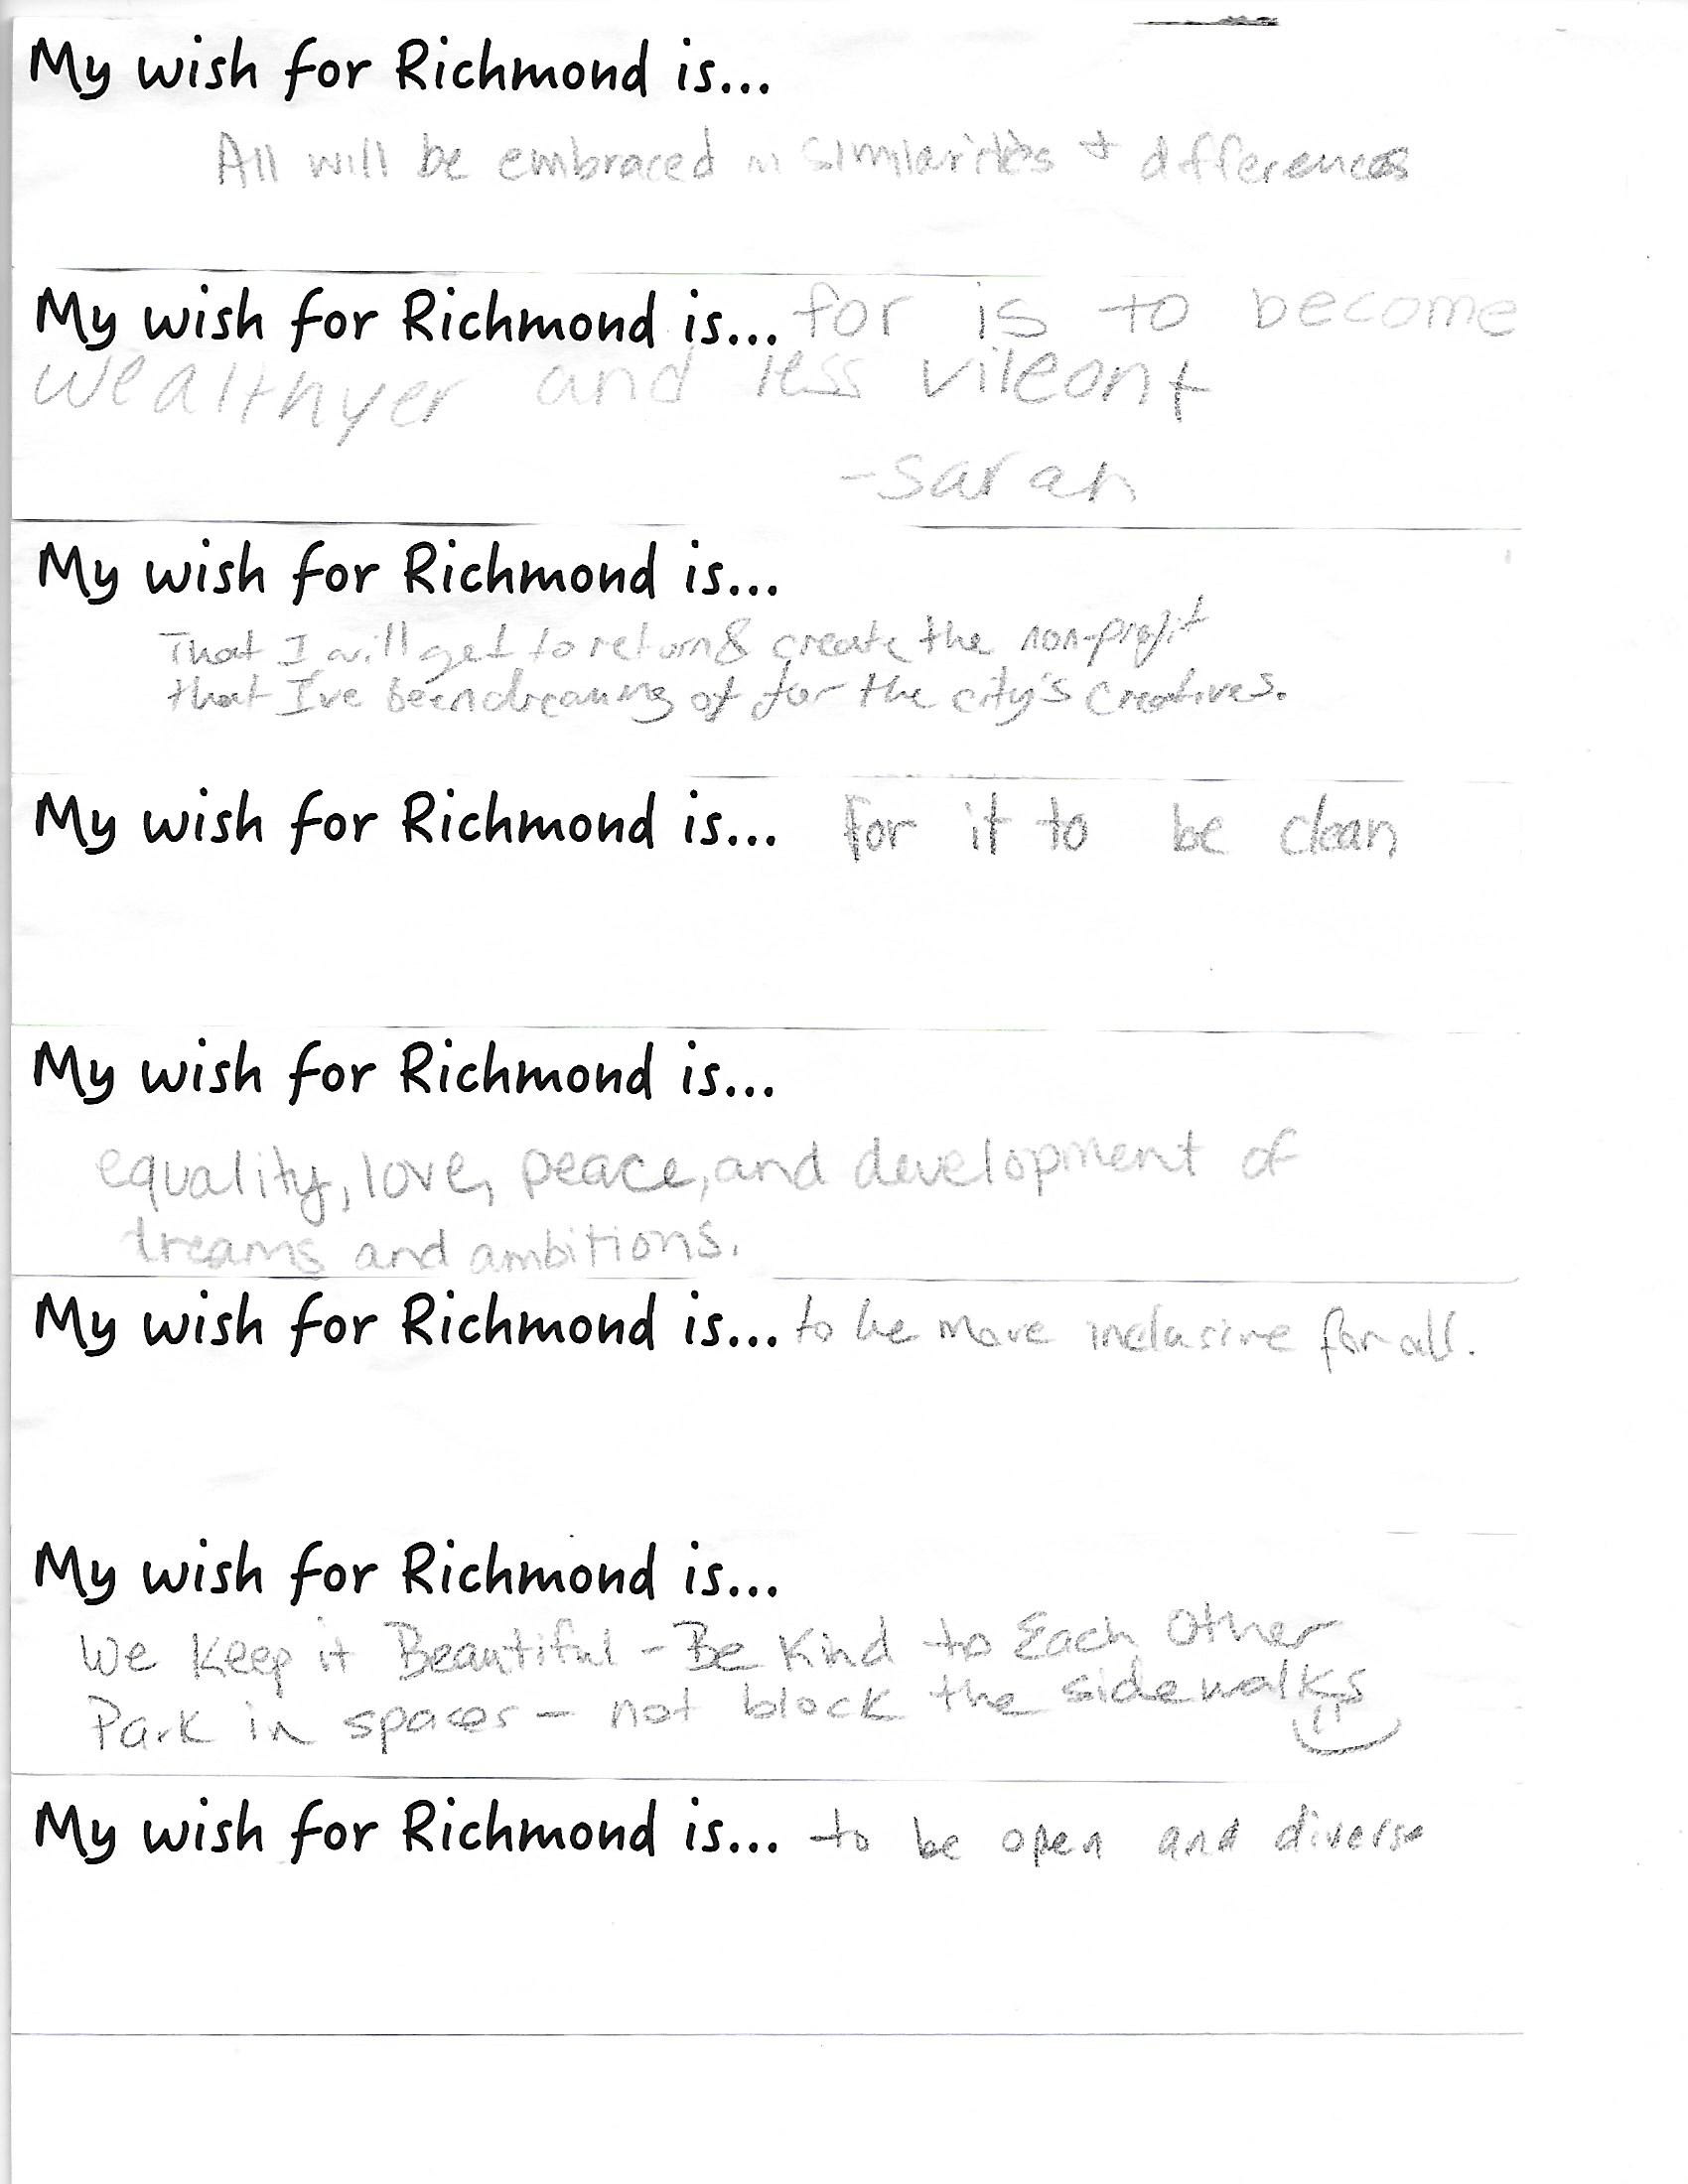 My wish for Richmond is...
All will be embraced in similarities + differences
My wish for Richmond is... for is to become
wealthyer and less vileont
-sarah
My wish for Richmond is...
That I will get to return & create the non-profit
that I've been dreaming of for the city's creatives.
My wish for Richmond is... for it to be clean
My wish for Richmond is...
equality, love, peace, and development of
dreams and ambitions.
My wish for Richmond is... to be more inclusive for all.
My wish for Richmond is...
We Keep it Beautiful - Be Kind to Each Other
Park in spaces - not block the sidewalks
My wish for Richmond is... to be open and diverse